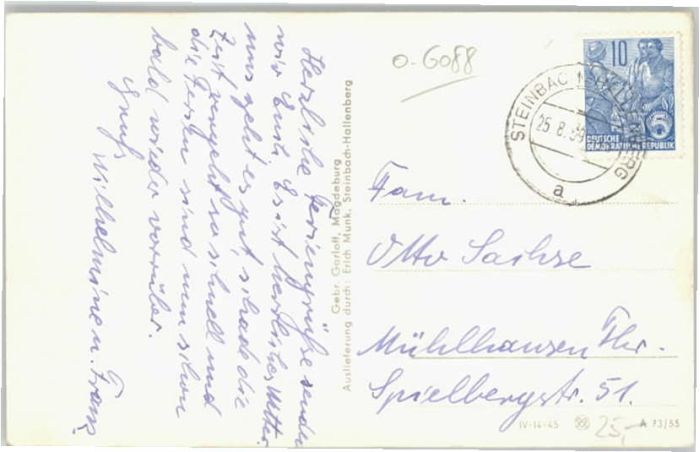 Herzliche Feriengrüße sendet
wir Euch. Es ist herrliches Wetter
uns geht es gut, schade die
Zeit vergeht so schnell und
die Ferien sind nun schon
bald wieder vorüber.
Gruß
Wilhelmine u. Franz
Gebr. Garloff, Magdeburg
Auslieferung durch: Erich Munk, Steinbach-Hallenberg
o-6088
10
5
DEUTSCHE
DEMOKRATISCHE REPUBLIK
STEINBACH-HALLENBERG
25.8.
a
Fam.
Otto Sachse
Mühlhausen Thr.
Spielbergstr. 51.
IV-14-45
25,-
A 73/55